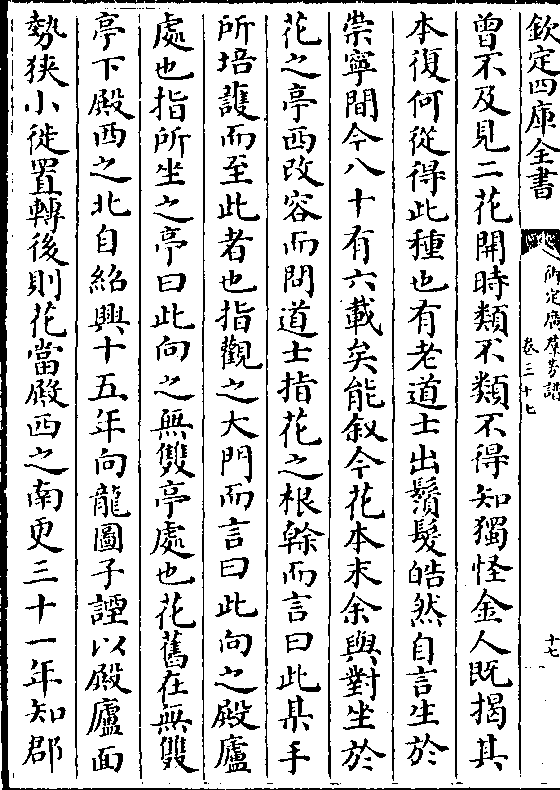 欽定四庫全書
御定廣羣芳譜
卷三十七
十七
曾不及見二花開時類不類不得知獨怪金人既揭其
本復何從得此種也有老道士出鬚髮皓然自言生於
崇寧間今八十有六載矣能叙今花本末余與對坐於
花之亭西改容而問道士指花之根榦而言曰此某手
所培護而至此者也指觀之大門而言曰此向之殿廬
處也指所坐之亭曰此向之無雙亭處也花舊在無雙
亭下殿西之北自紹興十五年向龍圖子諲以殿廬面
勢狹小徙置轉後則花當殿西之南更三十一年知郡